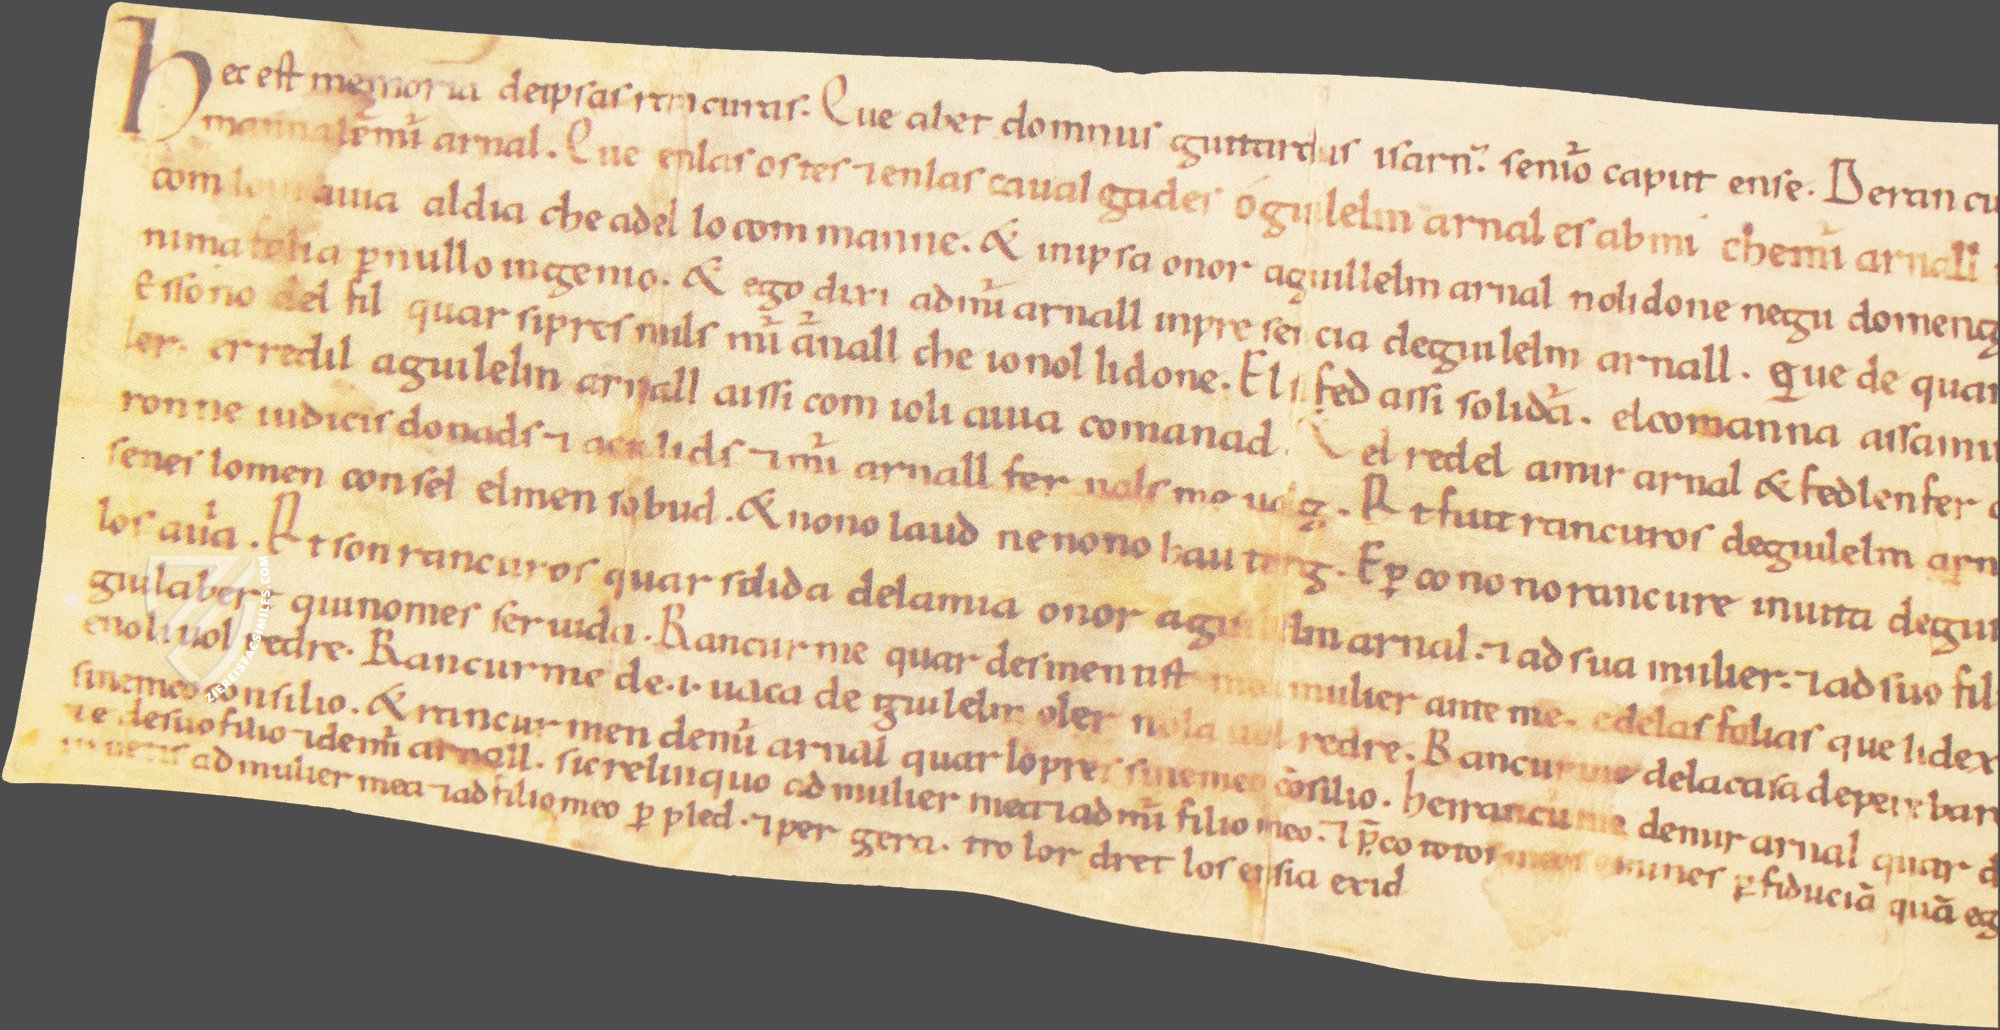 Hec est memoria deipsas rancuras. Que aber domnus guitardus isarn̄. seniō caput ense. De ran cu
mannal e mir̄ arnal. Que en las ostes ⁊ en las caual gades o guilelm arnal es ab mi che mir̄ arnall
com auia al dia che adel lo com manne. & in ipsa onor a guillelm arnal no li done negu domeng
ni ma tolia ꝑ nullo ingenio. & ego dixi ad mir̄ arnall in presencia de guilelm arnall. Que de quan
E si o no del fil quar si pres nuls mir̄ ar̄nall che io nol li done. El fed assi solida. el comanna aissamu
ler. er redil a guilelm arnall aissi com io li auia comanad. el redel a mir arnal & fed len fer
ronne iudicis donads ⁊ acullids ⁊ mir̄ arnall fer nols mo uolg. Et fuit rancuros de guilelm arn
senes lo men consel el men sobud. & no no laud ne no no hau torg. E ꝑ co no no rancure in uita de gui
los aūia. Et son rancuros quar solida de la mia onor a guilelm arnal. ⁊ ad sua mulier. ⁊ ad suo fil
guilaber qui no mes seruida. Rancur me quar desmentist mulier ante me. e de las folias que li dex
e no li uol redre. Rancur me de .i. uaca de guilelm oler no la uol redre. Rancur me de la casa de pere bar
sine meo consilio. & rancur men de mir̄ arnal quar lo pres sine meo cōsilio. her rancur me de mir arnal quar d
⁊ e de suo filio ⁊ de mir̄ arnall. sic relinquo ad mulier mea ⁊ ad mir̄ filio meo. ⁊ ꝑ co totos omines ꝑ fiducia quā eg
ad mulier mea ⁊ ad filio meo ꝑ pled. ⁊ per gera. tro lor dret los en sia exid
ZIEREISFACSIMILES.COM